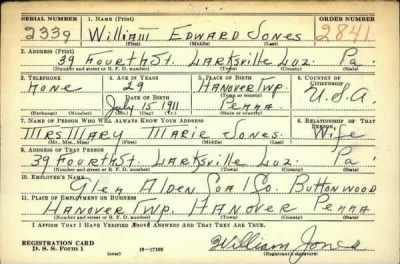 SERIAL NUMBER 1. NAME (Print) ORDER NUMBER
2339 William Edward Jones 2841
(First) (Middle) (Last)
2. ADDRESS (Print)
39 Fourth St. Larksville Luz. Pa.
(Number and street or R. F. D. number) (Town) (County) (State)
3. TELEPHONE 4. AGE IN YEARS 5. PLACE OF BIRTH 6. COUNTRY OF CITIZENSHIP
None 29 Hanover Twp. U.S.A.
DATE OF BIRTH (Town or county)
July 15 1911 Penna
(Exchange) (Number) (Mo.) (Day) (Yr.) (State or country)
7. NAME OF PERSON WHO WILL ALWAYS KNOW YOUR ADDRESS 8. RELATIONSHIP OF THAT PERSON
Mrs Mary Marie Jones. Wife
(Mr., Mrs., Miss) (First) (Middle) (Last)
9. ADDRESS OF THAT PERSON
39 Fourth St. Larksville Luz. Pa
(Number and street or R. F. D. number) (Town) (County) (State)
10. EMPLOYER'S NAME
Glen Alden Coa Co. Buttonwood
11. PLACE OF EMPLOYMENT OR BUSINESS
Hanover Twp. Hanover Penna
(Number and street or R. F. D. number) (Town) (County) (State)
I AFFIRM THAT I HAVE VERIFIED ABOVE ANSWERS AND THAT THEY ARE TRUE.
REGISTRATION CARD William Jones
D. S. S. Form 1 (over) 16—17105 (Registrant's signature)